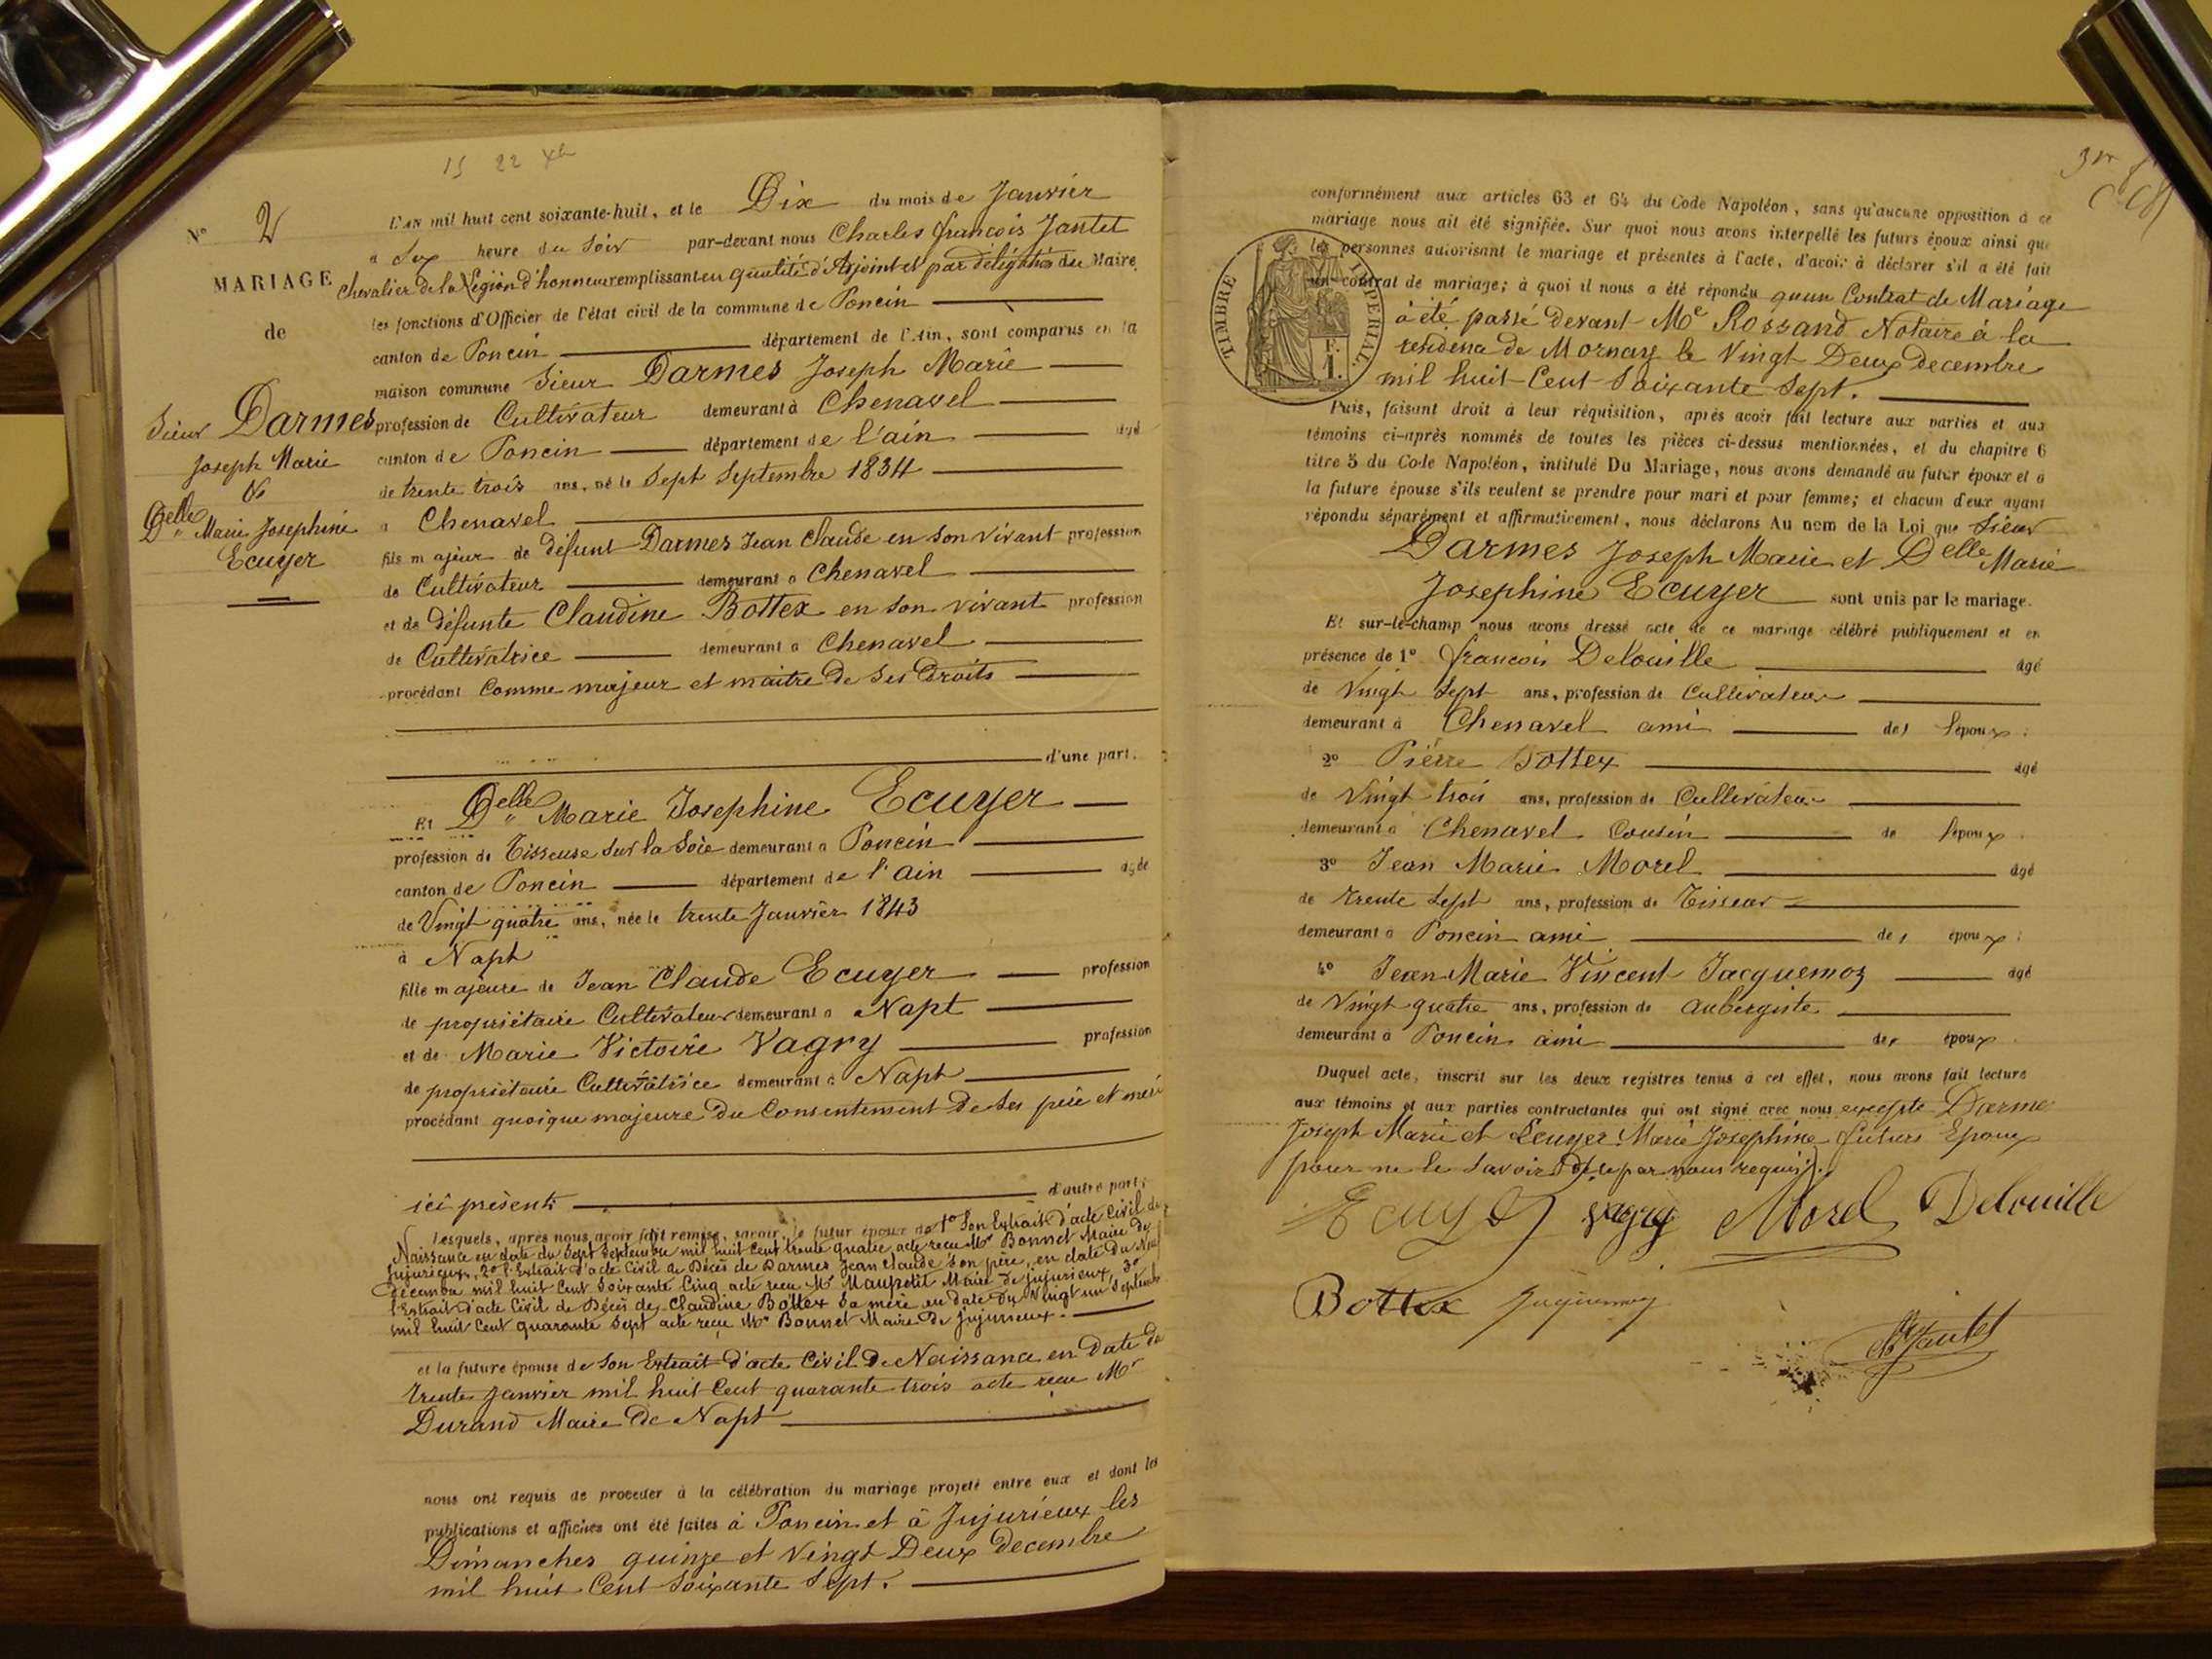 15 22 Xbre
N° 2
MARIAGE
de
Sieur Darmes
Joseph Marie
&
Delle Marie Josephine
Ecuyer
L'an mil huit cent soixante-huit, et le Dix du mois de Janvier
a Six heure du Soir par-devant nous Charles François Jantet
Chevalier de la Légion d'honneur remplissant en qualité d'Adjoint et par délégation du Maire
les fonctions d'Officier de l'état civil de la commune de Poncin
canton de Poncin département de l'Ain, sont comparus en la
maison commune Sieur Darmes Joseph Marie
profession de Cultivateur demeurant à Chenavel
canton de Poncin département de l'ain agé
de trente trois ans, né le Sept Septembre 1834
a Chenavel
fils majeur de défunt Darmes Jean Claude en son vivant profession
de Cultivateur demeurant a Chenavel
et de défunte Claudine Bottex en son vivant profession
de Cultivatrice demeurant a Chenavel
procédant Comme majeur et maitre de ses Droits
d'une part.
Et Delle Marie Josephine Ecuyer
profession de Tisseuse Sur la Soie demeurant a Poncin
canton de Poncin département de l'ain agée
de Vingt quatre ans, née le trente Janvier 1843
à Napt
fille majeure de Jean Claude Ecuyer profession
de propriétaire Cultivateur demeurant a Napt
et de Marie Victoire Vagry profession
de propriétaire Cultivatrice demeurant a Napt
procédant quoique majeure du Consentement de ses père et mère
ici présents d'autre part;
Lesquels, après nous avoir fait remise, savoir, le futur époux de 1° Son Extrait d'acte Civil de
Naissance en date du Sept Septembre mil huit Cent trente quatre, acte reçu Mr Bonnet Maire de
Jujurieux, 2° l'Extrait d'acte Civil de Décès de Darmes Jean Claude Son père, en date du Neuf
décembre mil huit Cent Soixante Cinq acte reçu Mr Maupetit Maire de Jujurieux, 3°
l'Extrait d'acte Civil de Décès de Claudine Bottex Sa mère en date du Vingt un Septembre
mil huit Cent quarante Sept acte reçu Mr Bonnet Maire de Jujurieux.
et la future épouse de Son Extrait d'acte Civil de Naissance en date du
trente Janvier mil huit Cent quarante trois acte reçu Mr
Durand Maire de Napt
nous ont requis de proceder à la célébration du mariage projeté entre eux et dont les
publications et affiches ont été faites à Poncin et à Jujurieux les
Dimanches quinze et Vingt Deux decembre
mil huit Cent Soixante Sept.
conformément aux articles 63 et 64 du Code Napoléon, sans qu'aucune opposition à ce
mariage nous ait été signifiée. Sur quoi nous avons interpellé les futurs époux ainsi que
les personnes autorisant le mariage et présentes à l'acte, d'avoir à déclarer s'il a été fait
un contrat de mariage; à quoi il nous a été répondu qu'un Contrat de Mariage
à été passé devant Me Rossand Notaire à la
residence de Mornay le Vingt Deux decembre
mil huit Cent Soixante Sept.
TIMBRE IMPERIAL
F.
1.
Puis, faisant droit à leur réquisition, après avoir fait lecture aux parties et aux
témoins ci-après nommés de toutes les pièces ci-dessus mentionnées, et du chapitre 6
titre 5 du Code Napoléon, intitulé Du Mariage, nous avons demandé au futur époux et a
la future épouse s'ils veulent se prendre pour mari et pour femme; et chacun d'eux ayant
répondu séparément et affirmativement, nous déclarons Au nom de la Loi que Sieur
Darmes Joseph Marie et Delle Marie
Josephine Ecuyer sont unis par le mariage.
Et sur-le-champ nous avons dressé acte de ce mariage célébré publiquement et en
présence de 1° François Delouille agé
de Vingt Sept ans, profession de Cultivateur
demeurant à Chenavel ami des l'époux;
2° Pierre Bottex agé
de Vingt trois ans, profession de Cultivateur
demeurant a Chenavel Cousin de l'époux.
3° Jean Marie Morel agé
de trente Sept ans, profession de Tisseur
demeurant a Poncin ami des époux;
4° Jean Marie Vincent Jacquemoz agé
de Vingt quatre ans, profession de aubergiste
demeurant à Poncin ami des époux.
Duquel acte, inscrit sur les deux registres tenus à cet effet, nous avons fait lecture
aux témoins et aux parties contractantes qui ont signé avec nous excepté Darme
Joseph Marie et Ecuyer Marie Josephine futurs Epoux
pour ne le Savoir de ce par nous requis.
Ecuyer Vagry Morel Delouille
Bottex Jaquemoz
Ch Jantet